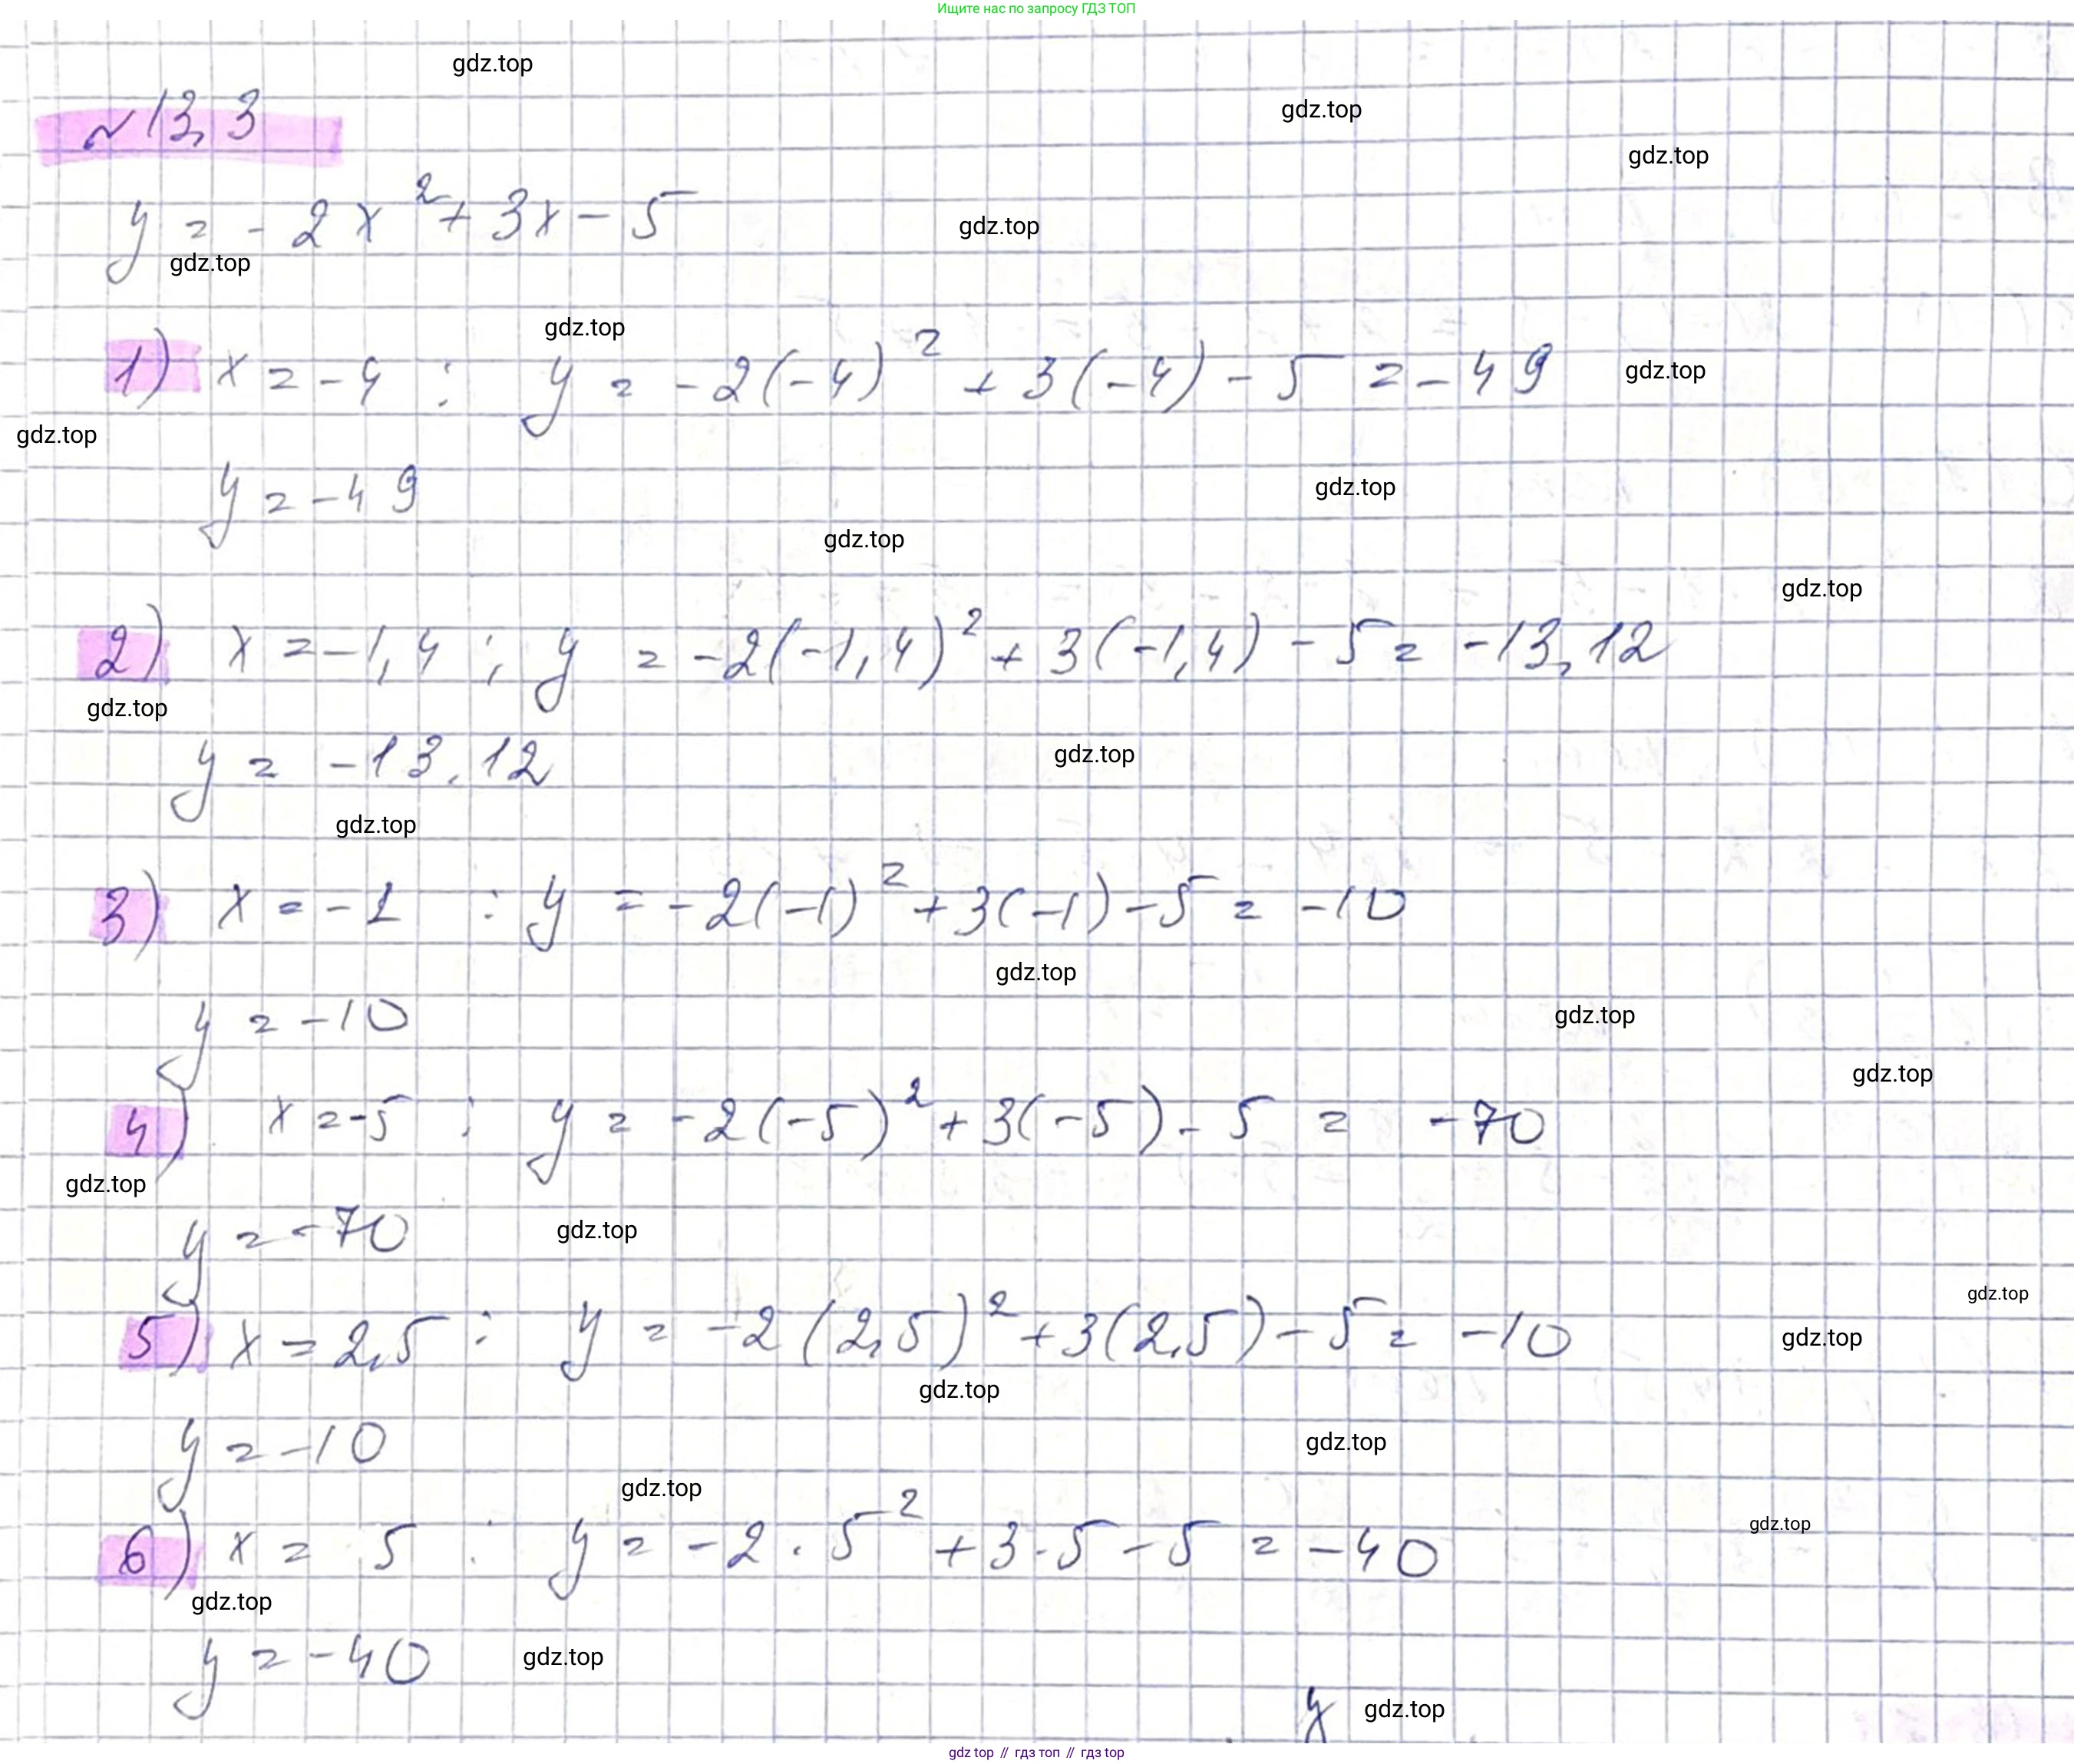 Ищите нас по запросу ГДЗ ТОП
gdz.top
gdz.top
№ 13,3
gdz.top
y = -2x² + 3x - 5
gdz.top
gdz.top
gdz.top
1) x = -4 : y = -2(-4)² + 3(-4) - 5 = -49
gdz.top
gdz.top
y = -49
gdz.top
gdz.top
gdz.top
2) x = -1,4 ; y = -2(-1,4)² + 3(-1,4) - 5 = -13,12
gdz.top
y = -13.12
gdz.top
gdz.top
3) x = -1 : y = -2(-1)² + 3(-1) - 5 = -10
gdz.top
y = -10
gdz.top
gdz.top
4) x = -5 : y = -2(-5)² + 3(-5) - 5 = -70
gdz.top
y = -70
gdz.top
gdz.top
5) x = 2,5 : y = -2(2,5)² + 3(2,5) - 5 = -10
gdz.top
gdz.top
y = -10
gdz.top
gdz.top
gdz.top
6) x = 5 : y = -2 · 5² + 3 · 5 - 5 = -40
gdz.top
y = -40
gdz.top
y
gdz.top
gdz top // гдз топ // гдз top